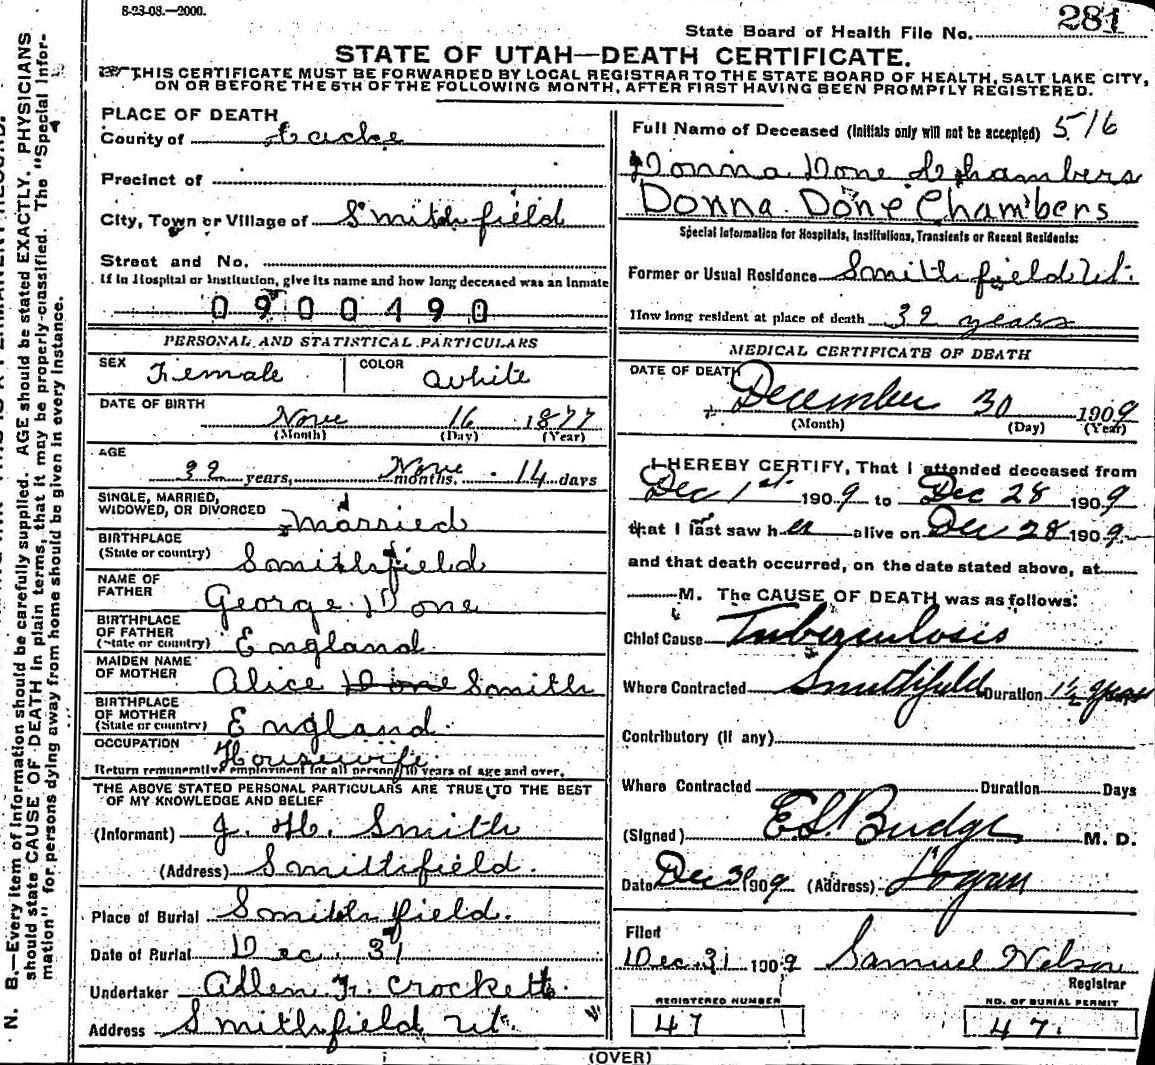 8-23-08.—2000.
State Board of Health File No. 281
STATE OF UTAH—DEATH CERTIFICATE.
THIS CERTIFICATE MUST BE FORWARDED BY LOCAL REGISTRAR TO THE STATE BOARD OF HEALTH, SALT LAKE CITY,
ON OR BEFORE THE 5TH OF THE FOLLOWING MONTH, AFTER FIRST HAVING BEEN PROMPTLY REGISTERED.
PLACE OF DEATH
County of Cache
Precinct of
City, Town or Village of Smithfield
Street and No.
If in Hospital or Institution, give its name and how long deceased was an Inmate
0900490
PERSONAL AND STATISTICAL PARTICULARS
SEX Female COLOR White
DATE OF BIRTH Nove 16 1877
(Month) (Day) (Year)
AGE 32 years, None months. 14 days
SINGLE, MARRIED,
WIDOWED, OR DIVORCED Married
BIRTHPLACE
(State or country) Smithfield
NAME OF
FATHER George Done
BIRTHPLACE
OF FATHER
(State or country) England
MAIDEN NAME
OF MOTHER Alice Done Smith
BIRTHPLACE
OF MOTHER
(State or country) England
OCCUPATION Housewife
Return remunerative employment for all persons 10 years of age and over.
THE ABOVE STATED PERSONAL PARTICULARS ARE TRUE TO THE BEST
OF MY KNOWLEDGE AND BELIEF
(Informant) J. H. Smith
(Address) Smithfield.
Place of Burial Smithfield.
Date of Burial Dec. 31
Undertaker Allen Fr. Crockett.
Address Smithsfield Ut.
Full Name of Deceased (Initials only will not be accepted) 516
Donna Done Chambers
Donna Done Chambers
Special Information for Hospitals, Institutions, Transients or Recent Residents:
Former or Usual Residence Smithsfield Ut.
How long resident at place of death 32 years
MEDICAL CERTIFICATE OF DEATH
DATE OF DEATH December 30 1909
(Month) (Day) (Year)
I HEREBY CERTIFY, That I attended deceased from
Dec 1st 1909 to Dec 28 1909
that I last saw her alive on Dec 28 1909
and that death occurred, on the date stated above, at
M. The CAUSE OF DEATH was as follows:
Chief Cause Tuberculosis
Where Contracted Smithfield Duration 1½ years
Contributory (If any)
Where Contracted Duration Days
(Signed) E.S. Budge M. D.
Date Dec 30 1909 (Address) Logan
Filed
Dec. 31 1909 Samuel Nelson
Registrar
REGISTERED NUMBER
47
NO. OF BURIAL PERMIT
47.
(OVER)
N. B.—Every item of information should be carefully supplied. AGE should be stated EXACTLY. PHYSICIANS
should state CAUSE OF DEATH in plain terms, that it may be properly classified. The "Special Infor-
mation" for persons dying away from home should be given in every instance.